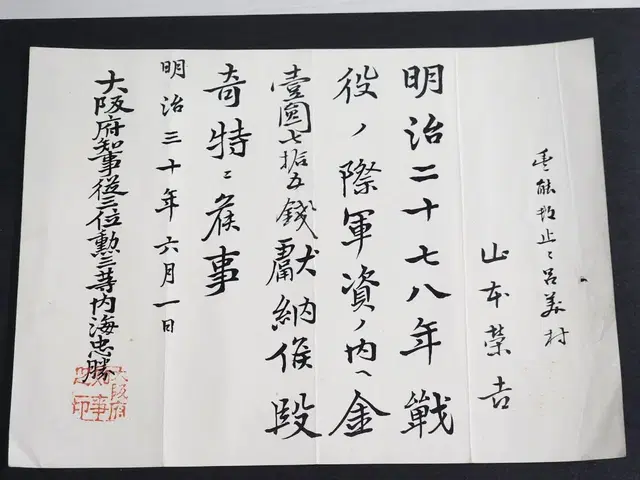 豊能郡止々呂美村
山本榮吉
明治二十七八年戰
役ノ際軍資ノ内ヘ金
壹圓七拾五錢獻納候段
奇特ニ候事
明治三十年六月一日
大阪府知事從三位勳三等内海忠勝
大阪府知事之印